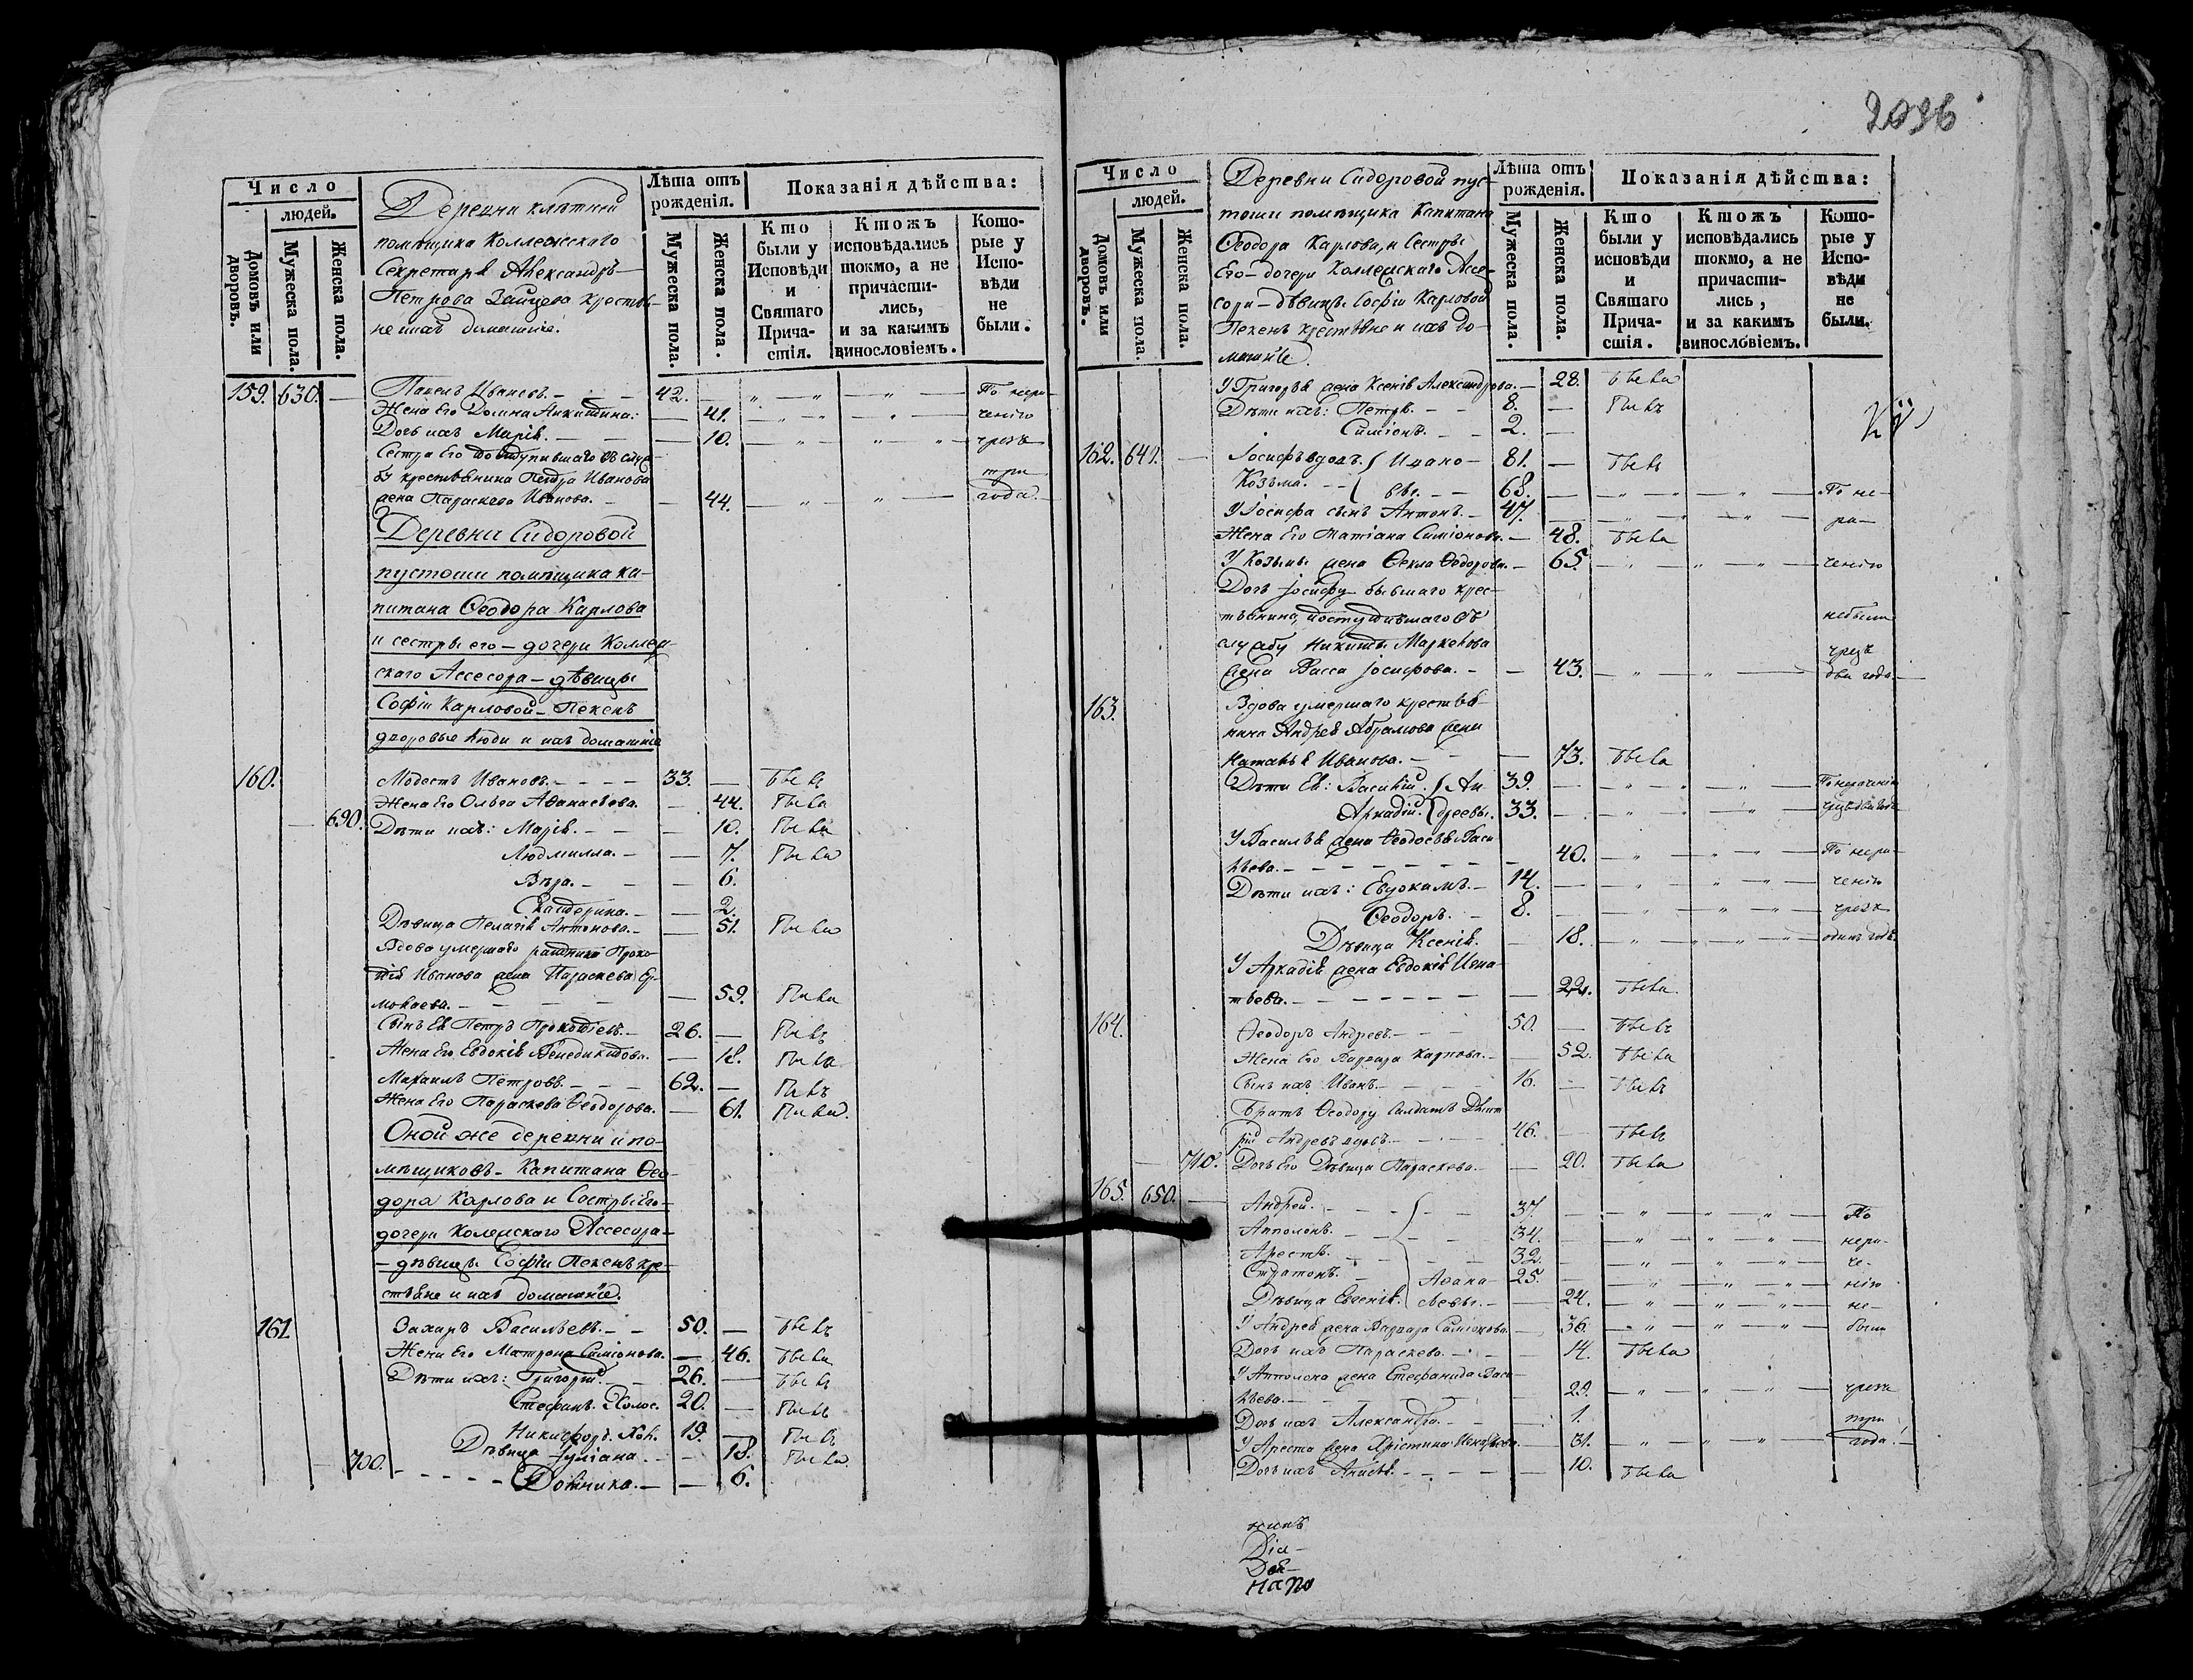 2036
Число
людей.
Домовъ или дворовъ.
Мужеска пола.
Женска пола.
Деревни
помѣщика Коллежскаго
Секретаря Александръ
Петрова Зайцева крестья-
не ихъ домашніе.
Лѣта отъ рожденія.
Мужеска пола.
Женска пола.
Показанія дѣйства:
Кто были у Исповѣди и Святаго Причастія.
Кто жъ исповѣдались токмо, а не причастились, и за какимъ винословіемъ.
Которые у Исповѣди не были.
159. 630. — Ивановъ. — 42. — По нера-
Жена Его Домна Никитина. — 41. — ченію
Дочь ихъ Марія. — 10. — чрезъ
Сестра Его поступившаго въ служ-
бу крестьянина Петра Иванова три
жена Параскева Иванова. — 44. — года.
Деревни Сидоровой
пустоши помѣщика ка-
питана Ѳеодора Карлова
и сестры его — дочери Коллеж-
скаго Ассесора — дѣвицы
Софіи Карловой — Пекенъ
дворовые люди и ихъ домашніе
160. Модестъ Ивановъ. — 33. — Былъ
Жена Его Ольга Аѳанасьева. — 44. Была
690. Дѣти ихъ: Марія. — 10. Была
Людмилла. — 7. Была
Вѣра. — 6.
Екатерина. — 2.
Дѣвица Пелагія Антонова. — 51. Была
Вдова умершаго Проко-
пія Иванова жена Параскева Ер-
молаева. — 59. Была
Сынъ Ея Петръ Прокопіевъ. — 26. — Былъ
Жена Его Евдокія Венедиктова. — 18. Была
Михаилъ Петровъ. — 62. — Былъ
Жена Его Параскева Ѳеодорова. — 61. Была.
Оной же деревни и по-
мѣщиковъ — Капитана Ѳео-
дора Карлова и Сестры Его —
дочери Колежскаго Ассесора —
— дѣвицы Софіи Пекенъ кре-
стьяне и ихъ домашніе.
161. Захаръ Васильевъ. — 50. — Былъ
Жена Его Матрона Симіонова. — 46. Была
Дѣти ихъ: Григорій. — 26. — Былъ
Стефанъ. Холос. 20. — Былъ
Никифоръ. Хол. 19. — Былъ
Дѣвица Іуліана. — 18. Была.
700. Домника. — 6.
Число
людей.
Домовъ или дворовъ.
Мужеска пола.
Женска пола.
Деревни Сидоровой пус-
тоши помѣщика Капитана
Ѳеодора Карлова, и Сестры
Его — дочери Коллежскаго Ассе-
сора — дѣвицы Софіи Карловой
Пекенъ крестьяне и ихъ до-
машніе
Лѣта отъ рожденія.
Мужеска пола.
Женска пола.
Показанія дѣйства:
Кто были у исповѣди и Святаго Причастія.
Кто жъ исповѣдались токмо, а не причастились, и за какимъ винословіемъ.
Которые у Исповѣди не были.
У Григорья жена Ксенія Александрова. — 28. Была
Дѣти ихъ: Петръ. — 8. — Былъ
Симіонъ. — 2. —
162. 641. — Іосифъ вдовъ. Иако- 81. — Былъ
Козьма. — вы. — 68. — По не-
У Іосифа сынъ Антонъ. — 47. — ра-
Жена Его Татіана Симіонова. — 48. Была
У Козьмы жена Ѳекла Ѳеодорова. — 65. — ченію
Дочь Іосифу бывшаго крес-
тьянина, поступившаго въ небыли
службу Никиты Маркелова чрезъ
жена Васса Іосифова. — 43. — два года. —
163. Вдова умершаго крестья-
нина Андрея Абрамова жена
Наталья Иванова. — 73. Была
Дѣти Ея: Василій. Ан- 39. — По нераченію
Аркадій. дреевы. 33. — чрезъ два года
У Василья жена Ѳеодосья Васи-
льева. — 40. — По нера-
Дѣти ихъ: Евдокимъ. — 14. — ченію
Ѳеодоръ. — 8. — чрезъ
Дѣвица Ксенія. — 18. — одинъ годъ.
У Аркадія жена Евдокія Игна-
тьева. — 22. Была.
164. Ѳеодоръ Андреевъ. — 50. — Былъ
Жена Его Варвара Карпова. — 52. Была
Сынъ ихъ Иванъ. — 16. — Былъ
Братъ Ѳеодору Солдатъ Дмит-
рій Андреевъ вдовъ. — 46. — Былъ
710. Дочь Его Дѣвица Параскева. — 20. Была
165. 650. — Андрей. — 37. — По
Апполонъ. — 34. — нера-
Арестъ. — 32. — че-
Стратонъ. — Аѳана- 25. — нію
Дѣвица Евгенія. сьевы. — 24. — не-
У Андрея жена Варвара Симіонова. — 36. — были
Дочь ихъ Параскева. — 14. Была
У Апполона жена Стефанида Васи-
льева. — 29. — чрезъ
Дочь ихъ Александра. — 1. три
У Ареста жена Христина Игнатьева. — 31. — года. —
Дочь ихъ Анисья. — 10. Была
Діа-
напо